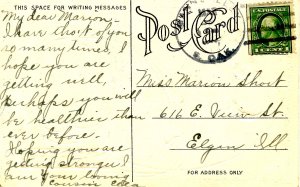 THIS SPACE FOR WRITING MESSAGES
My dear Marion:-
I have thot of you
so many times, I
hope you are
getting well,
Perhaps you will
be healthier than
ever before.
Hoping you are
getting stronger I
am your loving
cousin
Post Card
CAL.
1 CENT 1
Miss Marion Short
616 E. View St.
Elgin Ill
FOR ADDRESS ONLY